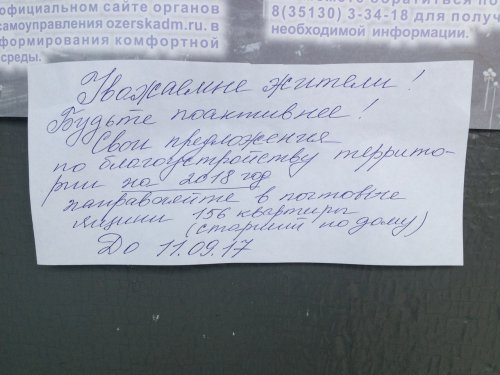 официальном сайте органов
самоуправления ozerskadm.ru. в
формирования комфортной
среды.
обратиться по
8(35130) 3-34-18 для полу
необходимой информации.
Уважаемые жители!
Будьте поактивнее!
Свои предложения
по благоустройству террито-
рии на 2018 год
направляйте в почтовые
ящики 156 квартиры
(старший по дому)
До 11.09.17